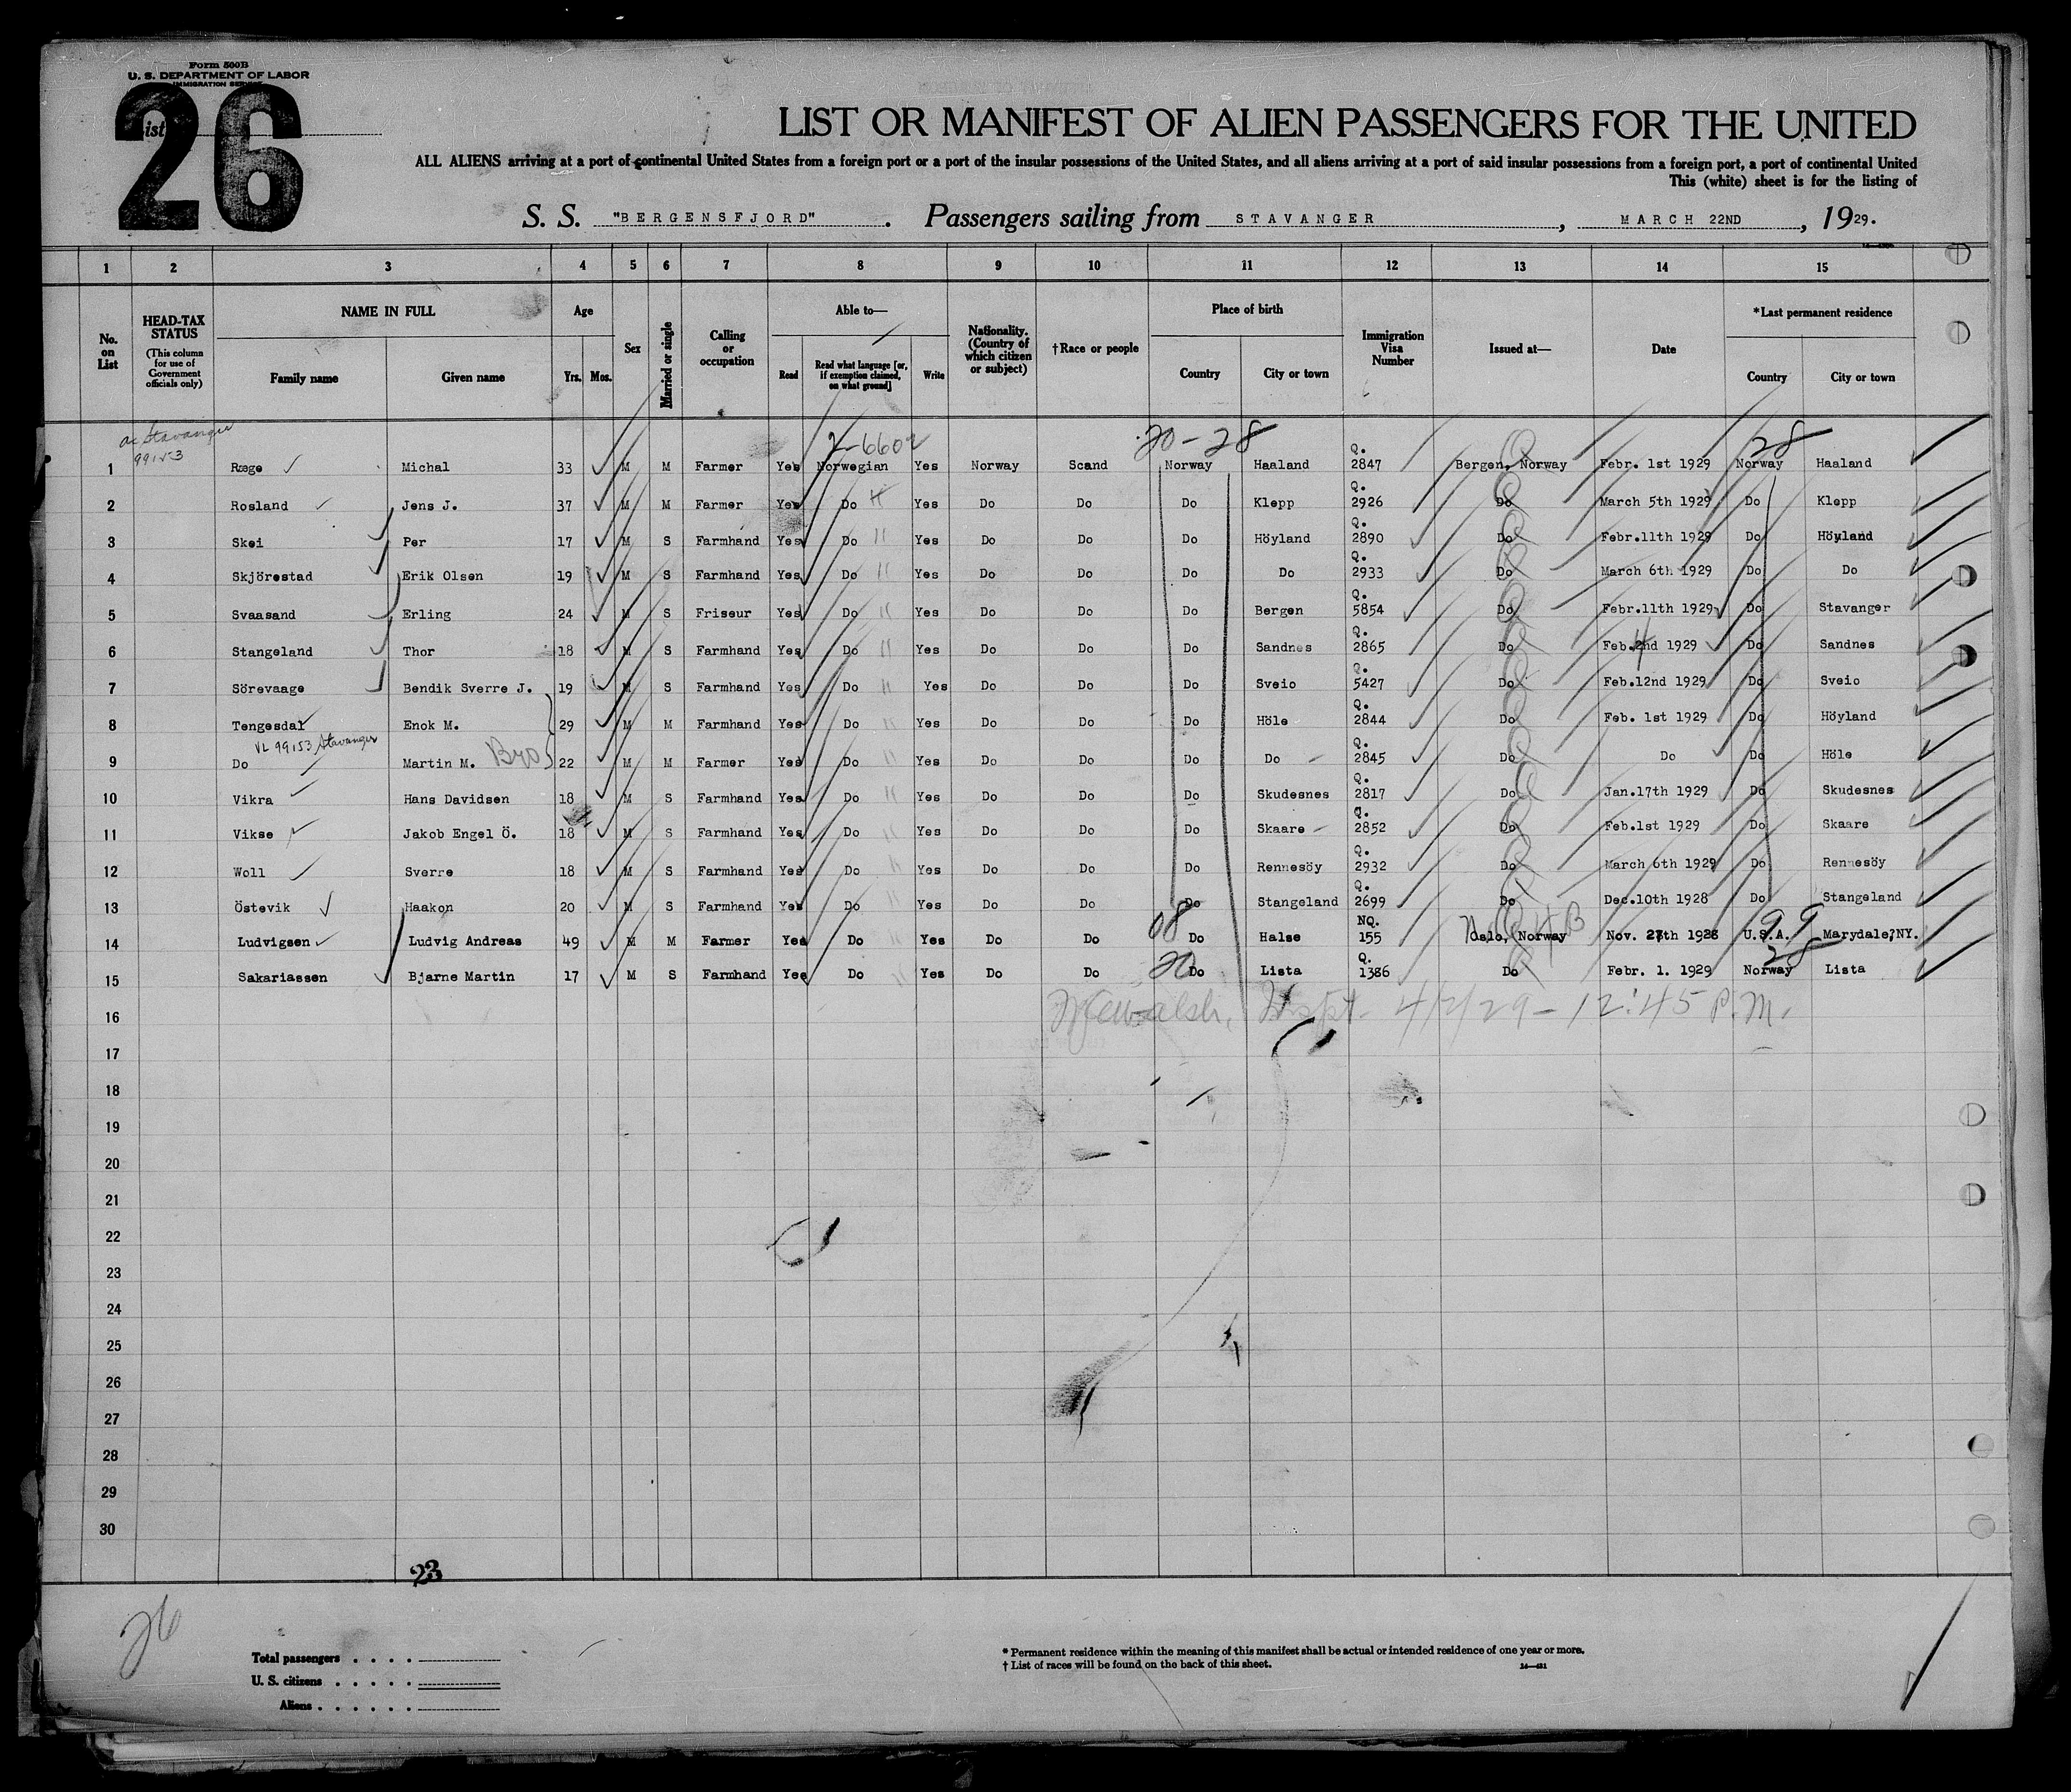 Form 500B
U. S. DEPARTMENT OF LABOR
IMMIGRATION SERVICE
26
List
LIST OR MANIFEST OF ALIEN PASSENGERS FOR THE UNITED
ALL ALIENS arriving at a port of continental United States from a foreign port or a port of the insular possessions of the United States, and all aliens arriving at a port of said insular possessions from a foreign port, a port of continental United
This (white) sheet is for the listing of
S. S. "BERGENSFJORD". Passengers sailing from STAVANGER, MARCH 22ND, 1929.
1 2 3 4 5 6 7 8 9 10 11 12 13 14 15
No. on List
HEAD-TAX STATUS
(This column for use of Government officials only)
NAME IN FULL
Family name Given name
Age
Yrs. Mos.
Sex
Married or single
Calling or occupation
Able to—
Read
Read what language [or, if exemption claimed, on what ground]
Write
Nationality. (Country of which citizen or subject)
†Race or people
Place of birth
Country City or town
Immigration Visa Number
Issued at—
Date
*Last permanent residence
Country City or town
Stavanger
99153
2-6602
20-28
28
1 Ræge Michal 33 M M Farmer Yes Norwegian Yes Norway Scand Norway Haaland Q. 2847 Bergen, Norway Febr. 1st 1929 Norway Haaland
2 Rosland Jens J. 37 M M Farmer Yes Do Yes Do Do Do Klepp Q. 2926 Do March 5th 1929 Do Klepp
3 Skei Per 17 M S Farmhand Yes Do Yes Do Do Do Höyland Q. 2890 Do Febr.11th 1929 Do Höyland
4 Skjörestad Erik Olsen 19 M S Farmhand Yes Do Yes Do Do Do Do Q. 2933 Do March 6th 1929 Do Do
5 Svaasand Erling 24 M S Friseur Yes Do Yes Do Do Do Bergen Q. 5854 Do Febr.11th 1929 Do Stavanger
6 Stangeland Thor 18 M S Farmhand Yes Do Yes Do Do Do Sandnes Q. 2865 Do Feb.2nd 1929 Do Sandnes
7 Sörevaage Bendik Sverre J. 19 M S Farmhand Yes Do Yes Do Do Do Sveio Q. 5427 Do Feb.12nd 1929 Do Sveio
8 Tengesdal Enok M. 29 M M Farmhand Yes Do Yes Do Do Do Höle Q. 2844 Do Feb. 1st 1929 Do Höyland
VL 99153 Stavanger
9 Do Martin M. Bros 22 M M Farmer Yes Do Yes Do Do Do Do Q. 2845 Do Do Do Höle
10 Vikra Hans Davidsen 18 M S Farmhand Yes Do Yes Do Do Do Skudesnes Q. 2817 Do Jan.17th 1929 Do Skudesnes
11 Vikse Jakob Engel Ö. 18 M S Farmhand Yes Do Yes Do Do Do Skaare Q. 2852 Do Feb.1st 1929 Do Skaare
12 Woll Sverre 18 M S Farmhand Yes Do Yes Do Do Do Rennesöy Q. 2932 Do March 6th 1929 Do Rennesöy
13 Östevik Haakon 20 M S Farmhand Yes Do Yes Do Do Do Stangeland Q. 2699 Do Dec.10th 1928 Do Stangeland
08 99
14 Ludvigsen Ludvig Andreas 49 M M Farmer Yes Do Yes Do Do Do Halse NQ. 155 Oslo, Norway Nov. 27th 1928 U.S.A. Marydale,NY.
20 28
15 Sakariassen Bjarne Martin 17 M S Farmhand Yes Do Yes Do Do Do Lista Q. 1386 Do Febr. 1. 1929 Norway Lista
Walsh, Inspt. 4/2/29 - 12:45 P.M.
16
17
18
19
20
21
22
23
24
25
26
27
28
29
30
23
26
Total passengers
U. S. citizens
Aliens
* Permanent residence within the meaning of this manifest shall be actual or intended residence of one year or more.
† List of races will be found on the back of this sheet.